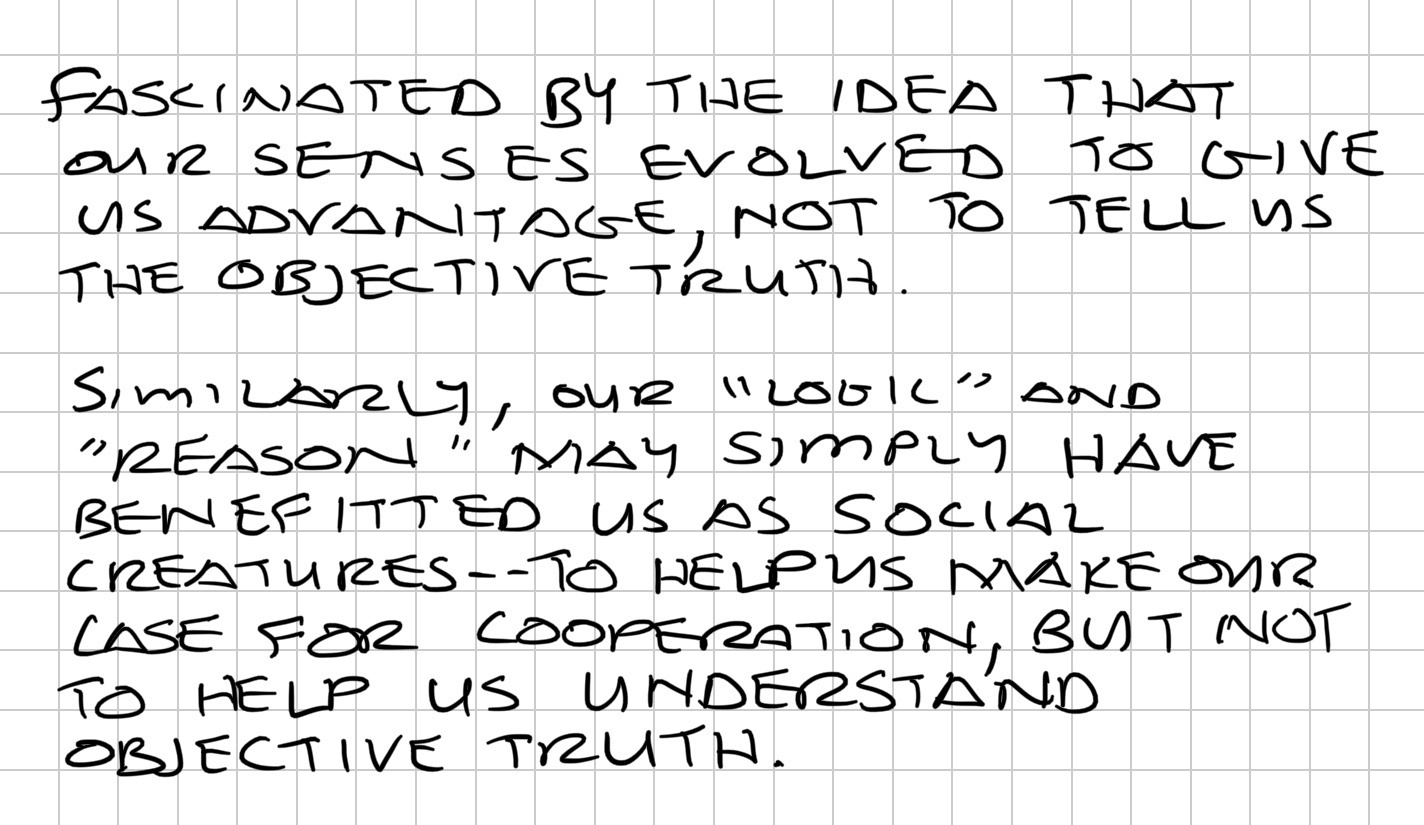 FASCINATED BY THE IDEA THAT
OUR SENSES EVOLVED TO GIVE
US ADVANTAGE, NOT TO TELL US
THE OBJECTIVE TRUTH.
SIMILARLY, OUR "LOGIC" AND
"REASON" MAY SIMPLY HAVE
BENEFITTED US AS SOCIAL
CREATURES--TO HELP US MAKE OUR
CASE FOR COOPERATION, BUT NOT
TO HELP US UNDERSTAND
OBJECTIVE TRUTH.